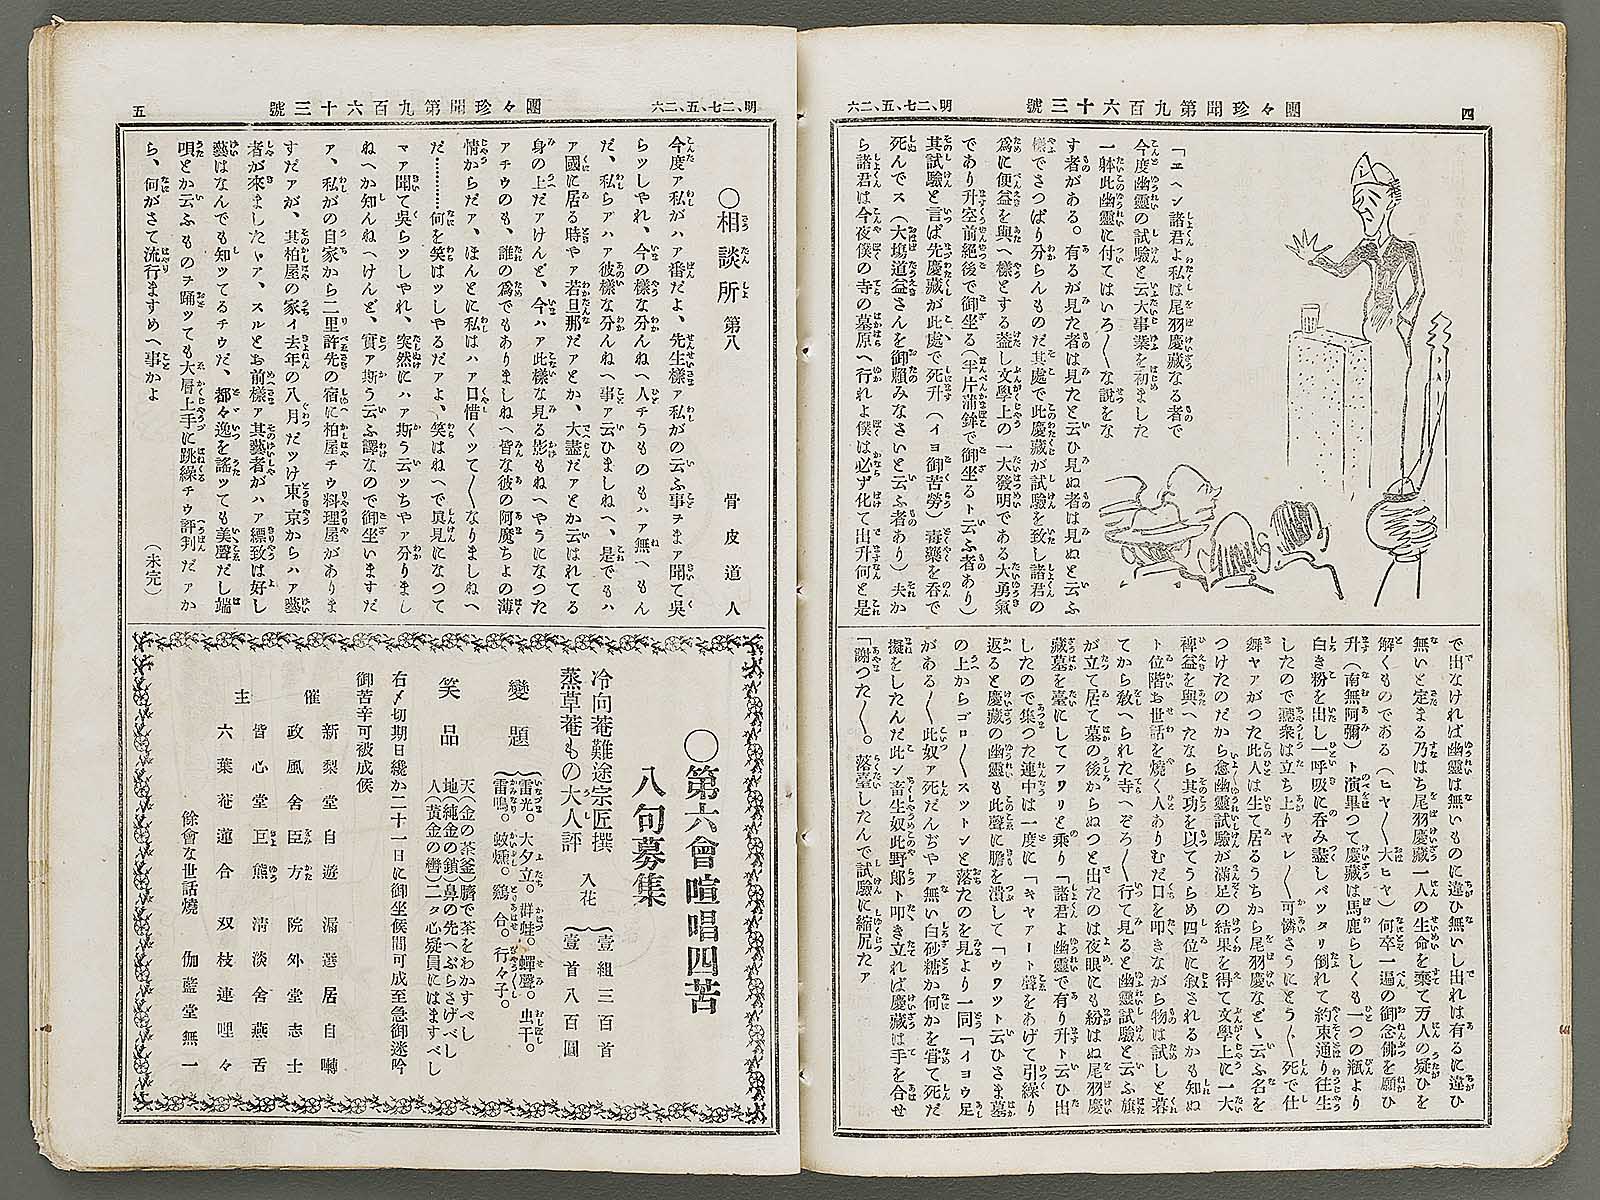 四
團々珍聞第九百六十三號
明、二七、五、二六
「ヱヘン諸君よ私は尾羽慶藏なる者で
今度幽靈の試驗と云大事業を初ました
一躰此幽靈に付てはいろ〳〵な說をな
す者がある。有るが見た者は見たと云ひ見ぬ者は見ぬと云ふ
樣でさつぱり分らんものだ其處で此慶藏が試驗を致し諸君の
爲に便益を與へ樣とする盖し文學上の一大發明である大勇氣
であり升空前絕後で御坐る（半片蒲鉾で御坐るト云ふ者あり）
其試驗と言ば先慶藏が此處で死升（イヨ御苦勞）毒藥を呑で
死んでス（大塲道益さんを御賴みなさいと云ふ者あり）夫か
ら諸君は今夜僕の寺の墓原へ行れよ僕は必ず化て出升何と是
で出なければ幽靈は無いものに違ひ無いし出れは有るに違ひ
無いと定まる乃はち尾羽慶藏一人の生命を棄て万人の疑ひを
解くものである（ヒヤ〳〵大ヒヤ）何卒一遍の御念佛を願ひ
升（南無阿彌）ト演畢つて慶藏は馬鹿らしくも一つの瓶より
白き粉を出し一呼吸に呑み盡しバツタリ倒れて約束通り往生
したので聽衆は立ち上りヤレ〳〵可憐さうにとう〳〵死で仕
舞ヤアがつた此人は生て居るうちから尾羽慶などゝ云ふ名を
つけたのだから愈幽靈試驗が滿足の結果を得て文學上に一大
裨益を與へたなら其功を以てうらめ四位に敘されるかも知ぬ
ト位階お世話を燒く人ありむだ口を叩きながら物は試しと暮
てから敎へられた寺へぞろ〳〵行て見ると幽靈試驗と云ふ旗
が立て居て墓の後からぬつと出たのは夜眼にも紛はぬ尾羽慶
藏墓を臺にしてフワリと乘り「諸君よ幽靈で有り升ト云ひ出
したので集つた連中は一度に「キヤアート聲をあげて引繰り
返ると慶藏の幽靈も此聲に膽を潰して「ウワツト云ひさま墓
の上からゴロ〳〵スツトンと落たのを見より一同「イヨウ足
がある〳〵此奴ァ死だんぢやァ無い白砂糖か何かを甞て死だ
擬をしたんだ此ン畜生奴此野郎ト叩き立れば慶藏は手を合せ
「謝つた〳〵。落臺したんで試驗に縮尻たァ
明、二七、五、二六
團々珍聞第九百六十三號
五
〇相談所 第八
骨皮道人
今度ァ私がハァ番だよ、先生樣ァ私がの云ふ事チまァ聞て吳
らツしやれ、今の樣な分んねへ人チうものもハァ無へもん
だ、私らァハァ彼樣な分んねへ事ァ云ひましねへ、是でもハ
ァ國に居る時やァ若旦那だァとか、大盡だァとか云はれてる
身の上だァけんど、今ハァ此樣な見る影もねへやうになつた
ァチウのも、誰の爲でもありましねへ皆な彼の阿魔ちよの薄
情からだァ、ほんとに私はハァ口惜くッて〳〵なりましねへ
だ…………何を笑はッしやるだァよ、笑はねへで眞見になつて
マァ聞て吳らッしやれ、突然にハァ斯う云ッちやァ分りまし
ねへか知んねへけんど、實ァ斯う云ふ譯なので御坐いますだ
ァ、私がの自家から二里許先の宿に柏屋チウ料理屋がありま
すだァが、其柏屋の家イ去年の八月だッけ東京からハァ藝
者が來ましたャァ、スルとお前樣ァ其藝者がハァ縹致は好し
藝はなんでも知ッてるチウだ、都々逸を謠ッても美聲だし端
唄とか云ふものチ踊ッても大層上手に跳繰チウ評判だァか
ら、何がさて流行ますめへ事かよ
（未完）
〇第六會喧唱四苦
八句募集
冷向菴難途宗匠撰
蒸草菴もの大人評
入花 壹組三百首
壹首八百圓
變題
雷光。大夕立。群蛙。蟬聲。虫干。
雷鳴。蚊燻。鷄合。行々子。
笑品
天（金の茶釜）臍で茶をわかすべし
地（純金の鎖）鼻の先へぶらさげべし
人（黃金の轡）二タ心疑員にはますべし
右〆切期日纔か二十一日に御坐候間可成至急御迷吟
御苦辛可被成候
催主
新梨堂自遊
漏選居自囀
政風舍臣方
院外堂志士
皆心堂巨熊
淸淡舍燕舌
六葉菴蓮合
双枝連哩々
餘會な世話燒 伽藍堂無一